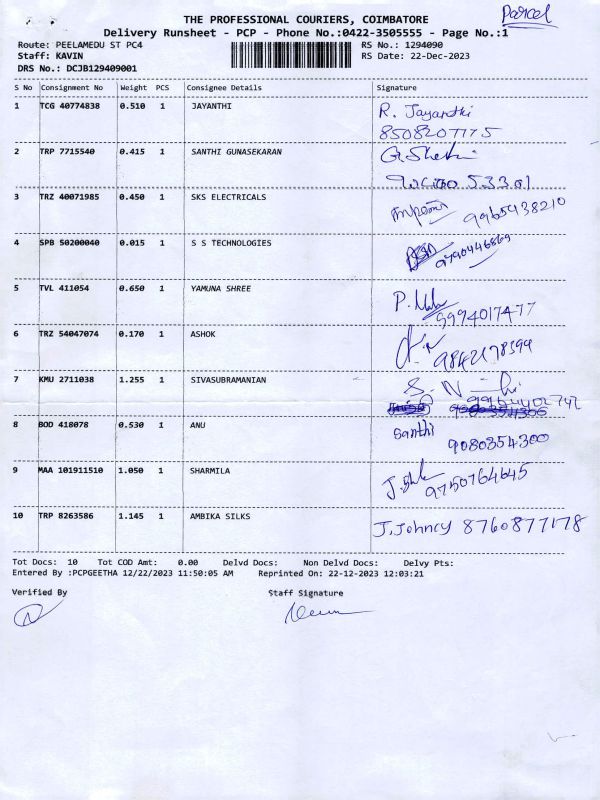 Parcel
THE PROFESSIONAL COURIERS, COIMBATORE
Delivery Runsheet - PCP - Phone No.:0422-3505555 - Page No.:1
Route: PEELAMEDU ST PC4 RS No.: 1294090
Staff: KAVIN RS Date: 22-Dec-2023
DRS No.: DCJB129409001
S No Consignment No Weight PCS Consignee Details Signature
1 TCG 40774838 0.510 1 JAYANTHI R. Jayanthi
8508207775
2 TRP 7715540 0.415 1 SANTHI GUNASEKARAN
3 TRZ 40071985 0.450 1 SKS ELECTRICALS 9965438210
4 SPB 50200040 0.015 1 S S TECHNOLOGIES 9790446869
5 TVL 411054 0.650 1 YAMUNA SHREE
9994017477
6 TRZ 54047074 0.170 1 ASHOK 9842178399
7 KMU 2711038 1.255 1 SIVASUBRAMANIAN
8 BOD 418078 0.530 1 ANU Santhi
9080354300
9 MAA 101911510 1.050 1 SHARMILA 9750764645
10 TRP 8263586 1.145 1 AMBIKA SILKS J. Johncy 8760877178
Tot Docs: 10 Tot COD Amt: 0.00 Delvd Docs: Non Delvd Docs: Delvy Pts:
Entered By :PCPGEETHA 12/22/2023 11:50:05 AM Reprinted On: 22-12-2023 12:03:21
Verified By Staff Signature